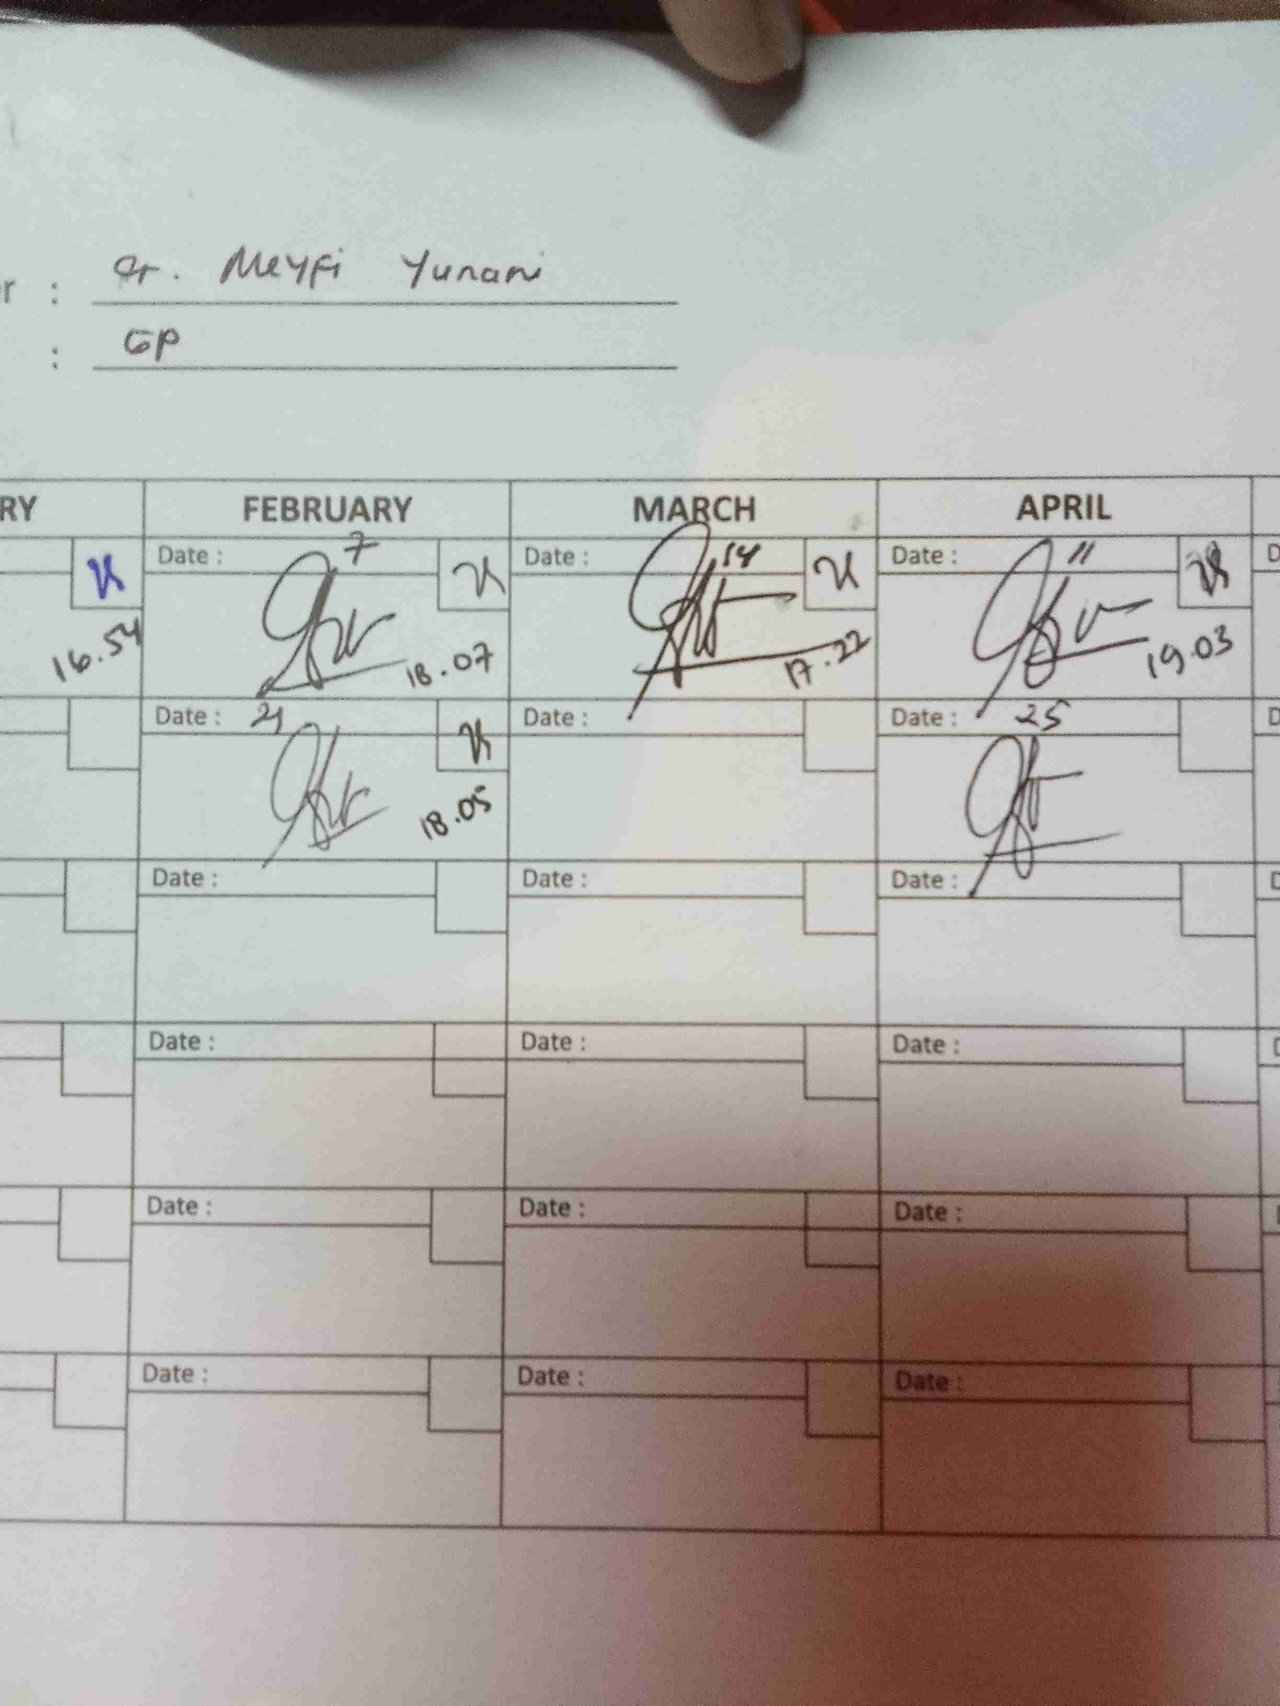 r : dr. Meyfi Yunani
: GP
RY FEBRUARY MARCH APRIL
Date : 7 Date : 14 Date : 11 D
16.54 18.07 17.22 19.03
Date : 21 Date : Date : 25 D
18.05
Date : Date : Date : D
Date : Date : Date : D
Date : Date : Date :
Date : Date : Date :